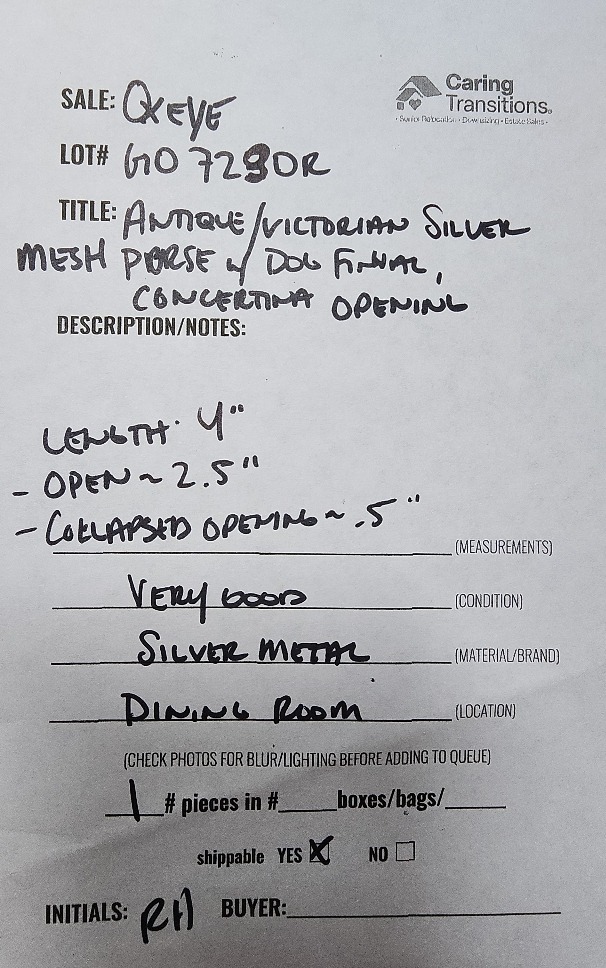 Caring
Transitions®
• Senior Relocation • Downsizing • Estate Sales •
SALE: QXEYE
LOT# GO729DR
TITLE: ANTIQUE/VICTORIAN SILVER
MESH PURSE w/ DOG FINIAL,
CONCERTINA OPENING
DESCRIPTION/NOTES:
LENGTH· 4"
- OPEN ~ 2.5"
- COLLAPSED OPENING ~ .5"
(MEASUREMENTS)
VERY GOOD (CONDITION)
SILVER METAL (MATERIAL/BRAND)
DINING ROOM (LOCATION)
(CHECK PHOTOS FOR BLUR/LIGHTING BEFORE ADDING TO QUEUE)
1 # pieces in #____boxes/bags/____
shippable YES ☒ NO ☐
INITIALS: RH BUYER:____